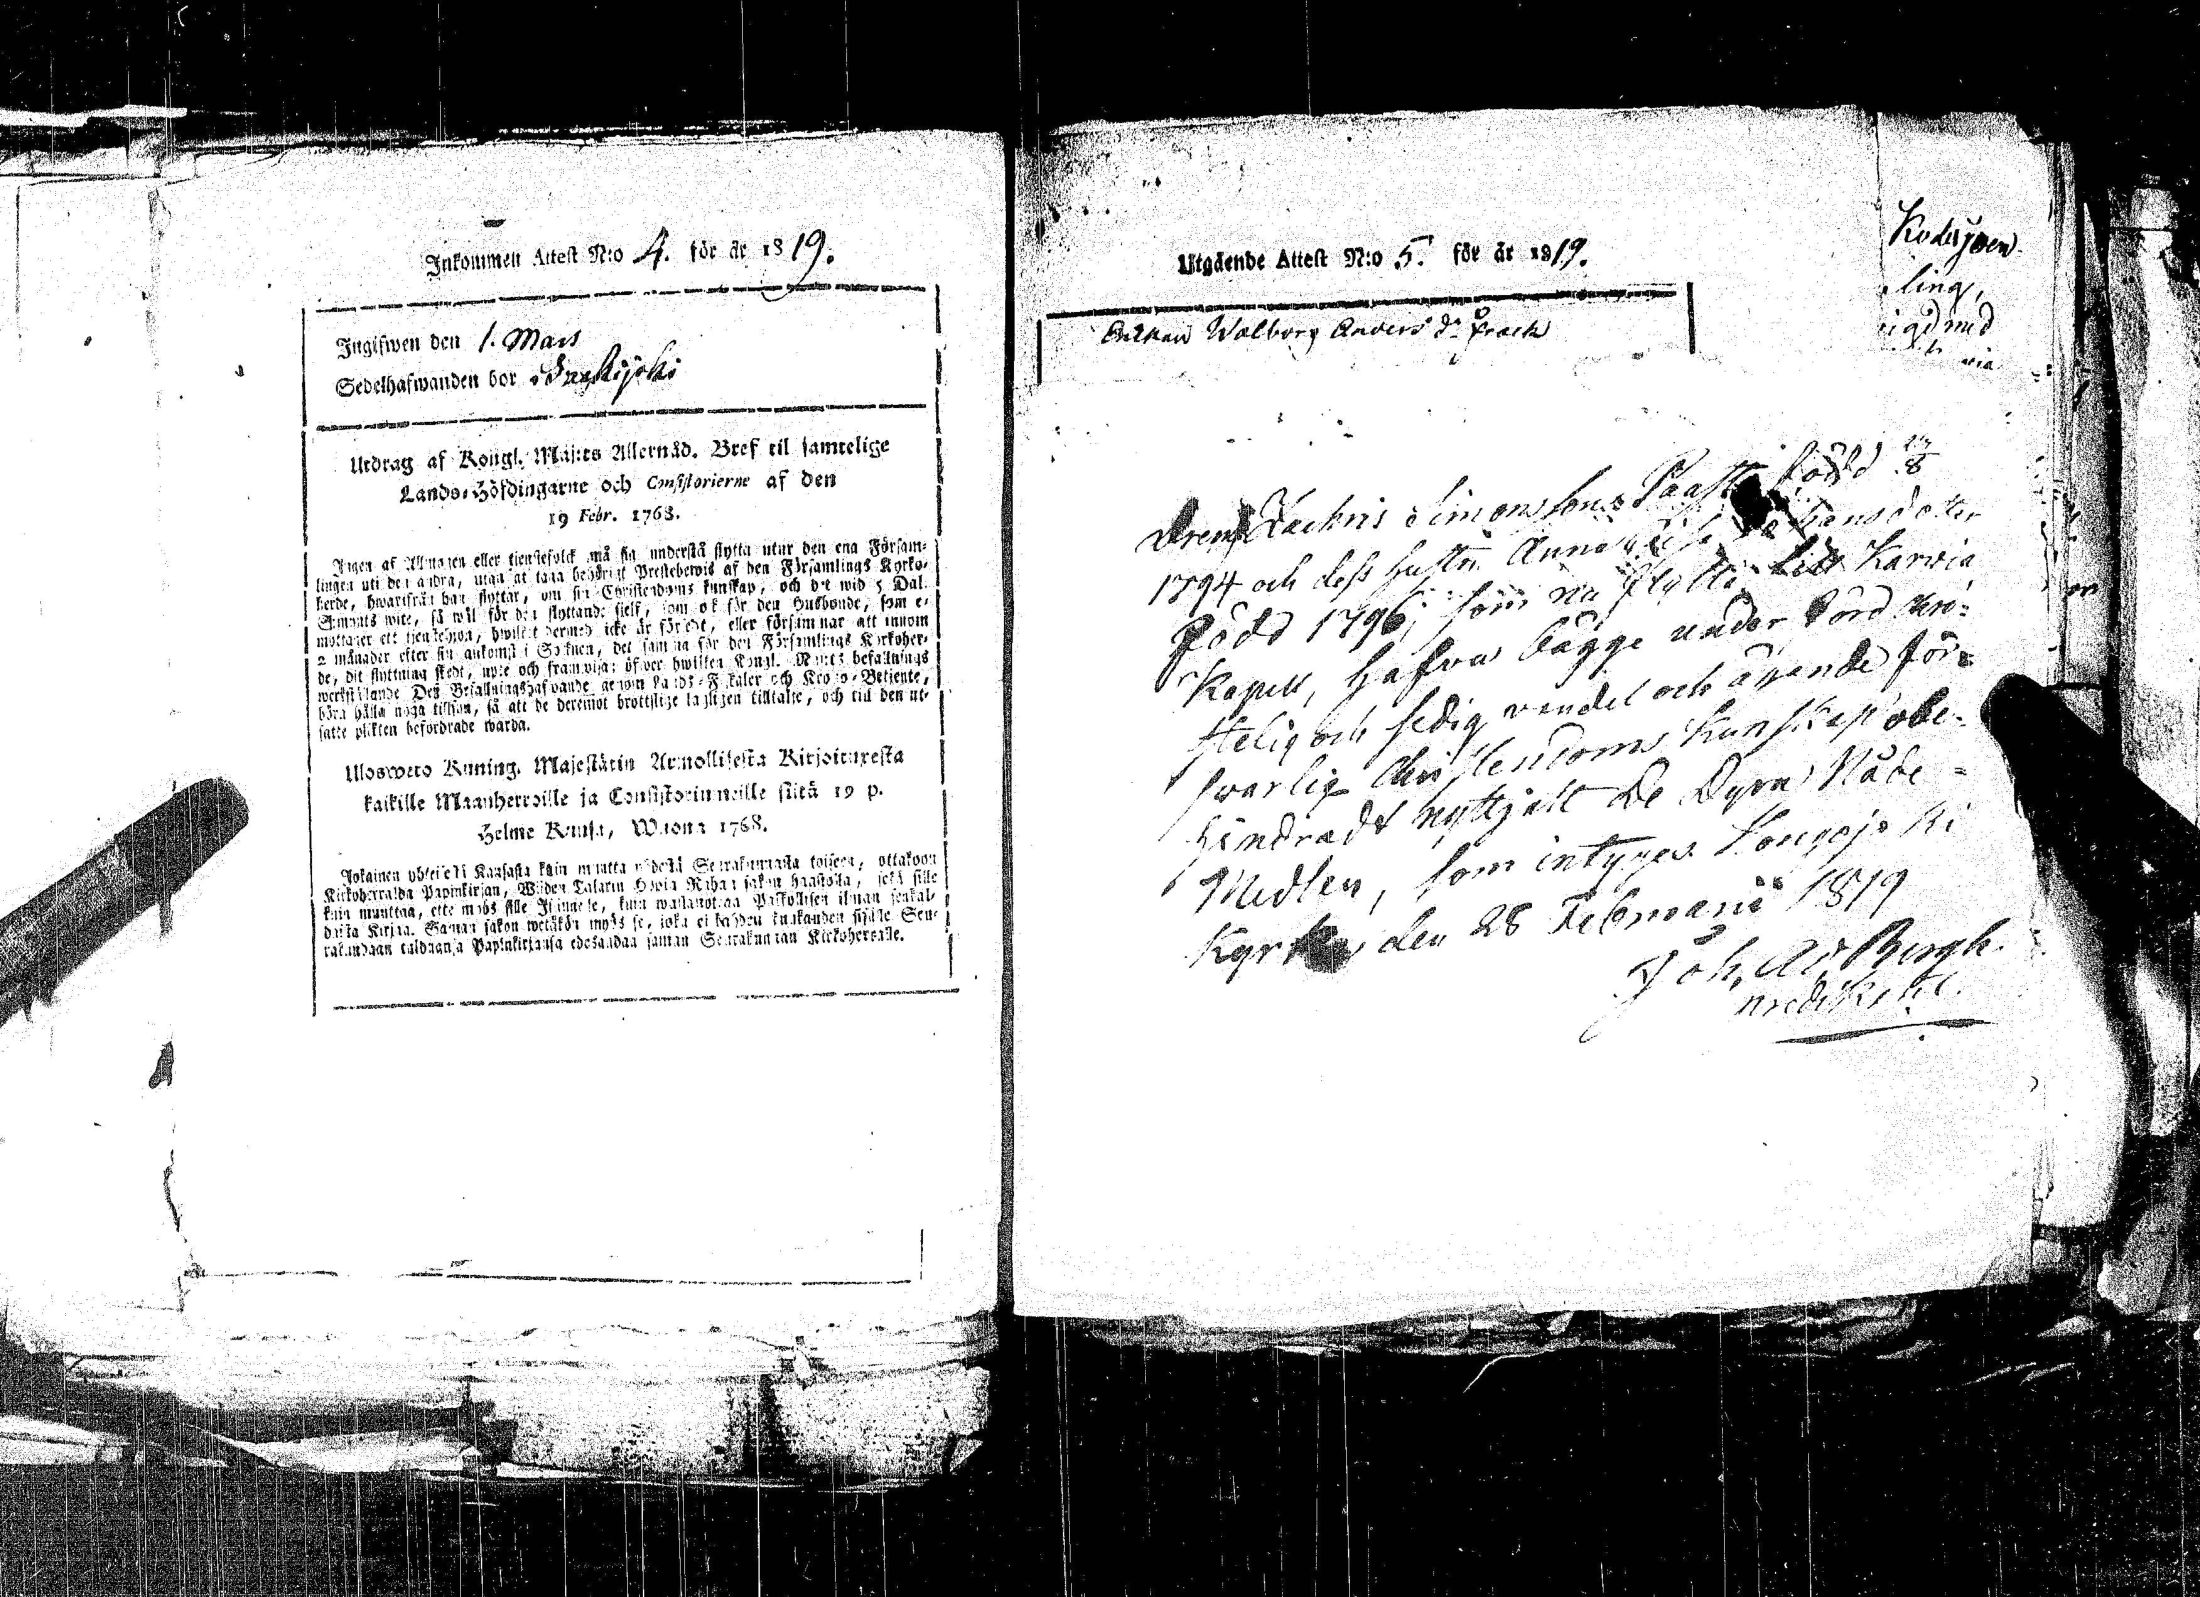 Inkommen Attest N:o 4. för år 1819.
Ingifwen den 1. Mars
Sedelhafwanden bor
Utdrag af Kongl. Maj:ts Allernåd. Bref til samtelige
Lands-Höfdingarne och Consistorierne af den
19 Febr. 1768.
Ingen af Allmogen eller tienstefolck må sig understå flytta utur den ena Försam-
lingen uti den andra, utan at taga behörigt Prestebewis af den Församlings Kyrko-
herde, hwarifrån han flyttar, om sin Christendoms kunskap, och det wid 5 Dal.
S:mynts wite, så wäl för den flyttande sielf, som ock för den Husbonde, som e-
mottager ett tjenstehjon, hwilket dermed icke är försedt, eller försummar att innom
2 månader efter sin ankomst i Socknen, det samma för den Församlings Kyrkoher-
de, dit flyttning skedt, upte och framwisa; öfwer hwilken Kongl. Maj:ts befallnings
werkställande Des Befallningshafwande genom Lands-Fiskaler och Krono-Betjente,
böra hålla noga tillsyn, så att de deremot brottslige lagligen tilltalte, och till den ut-
satte plikten befordrade warda.
Ulosweto Kuning. Majestätin Armollisesta Kirjoituxesta
kaikille Maanherroille ja Consistoriumeille siitä 19 p.
Helme Kuusa, Wuonna 1768.
Jokainen yhteisestä Kansasta kuin muutta yhdestä Seurakunnasta toiseen, ottakoon
Kirkoherralda Papinkirjan, Wiiden Talarin Hopia Rahan sakon haastolla, sekä sille
kuin muuttaa, että myös sille Isännälle, kuin wastanottaa Palkollisen ilman senkal-
daista Kirjaa. Saman sakon wetäkön myös se, joka ei kahden kuukauden sisälle Seu-
rakundaan tulduansa Papinkirjansa edesandaa saman Seurakunnan Kirkoherralle.
Utgående Attest N:o 5. för år 1819.
Enkan Walborg Anders d:r
ling,
Dreng Zachris Simonsson född
1794 och dess hustru Anna
född 1796, som nu flytta till Karvia
Kapell, hafva bägge under börd chri-
stelig och sedig vandel och ägande för-
svarlig Christendoms kunskap obe-
hindradt nyttjatt De Dyra Nåde-
Medlen, som intygas Longojoki
Kyrka den 28 Februarii 1819
Joh. Ad. Bergh.